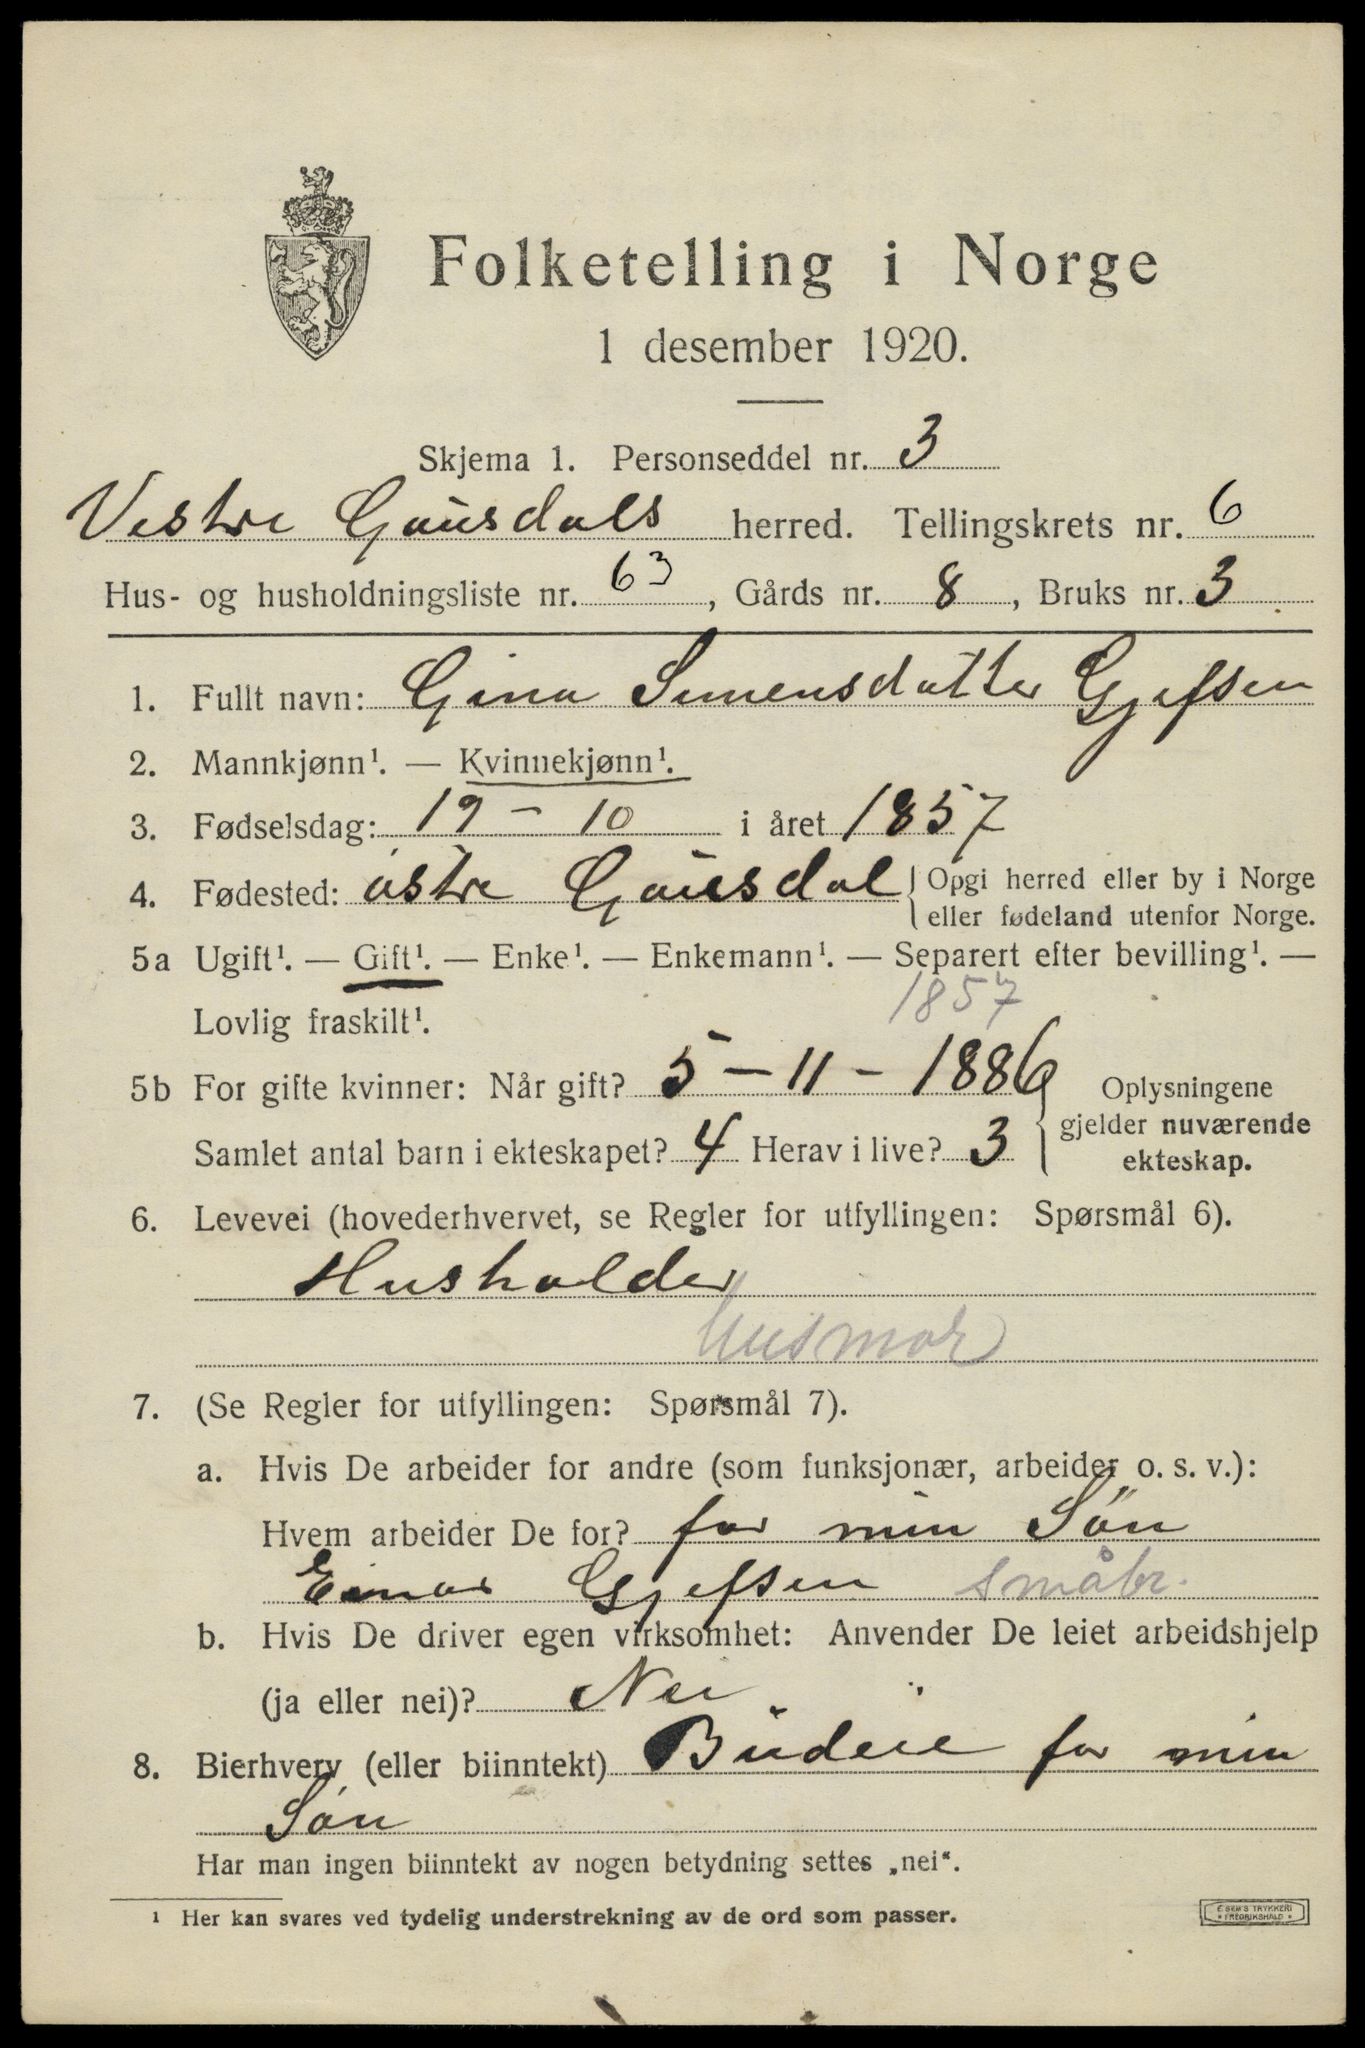 Folketelling i Norge
1 desember 1920.
Skjema 1. Personseddel nr. 3
Vestre Gausdals herred. Tellingskrets nr. 6
Hus- og husholdningsliste nr. 63, Gårds nr. 8, Bruks nr. 3
1. Fullt navn: Gina Simensdatter Gjefsen
2. Mannkjønn¹. — Kvinnekjønn¹.
3. Fødselsdag: 19 – 10 i året 1857
4. Fødested: østre Gausdal { Opgi herred eller by i Norge
eller fødeland utenfor Norge.
5a Ugift¹. — Gift¹. — Enke¹. — Enkemann¹. — Separert efter bevilling¹. —
Lovlig fraskilt¹. 1857
5b For gifte kvinner: Når gift? 5 – 11 – 1886
Samlet antal barn i ekteskapet? 4 Herav i live? 3
{ Oplysningene
gjelder nuværende
ekteskap.
6. Levevei (hovederhvervet, se Regler for utfyllingen: Spørsmål 6).
Husholder
husmor
7. (Se Regler for utfyllingen: Spørsmål 7).
a. Hvis De arbeider for andre (som funksjonær, arbeider o. s. v.):
Hvem arbeider De for? for min Søn
Einar Gjefsen småbr.
b. Hvis De driver egen virksomhet: Anvender De leiet arbeidshjelp
(ja eller nei)? Nei
8. Bierhverv (eller biinntekt) Budeie for min
Søn
Har man ingen biinntekt av nogen betydning settes „nei“.
¹ Her kan svares ved tydelig understrekning av de ord som passer.
E. SEM'S TRYKKERI
• FREDRIKSHALD •